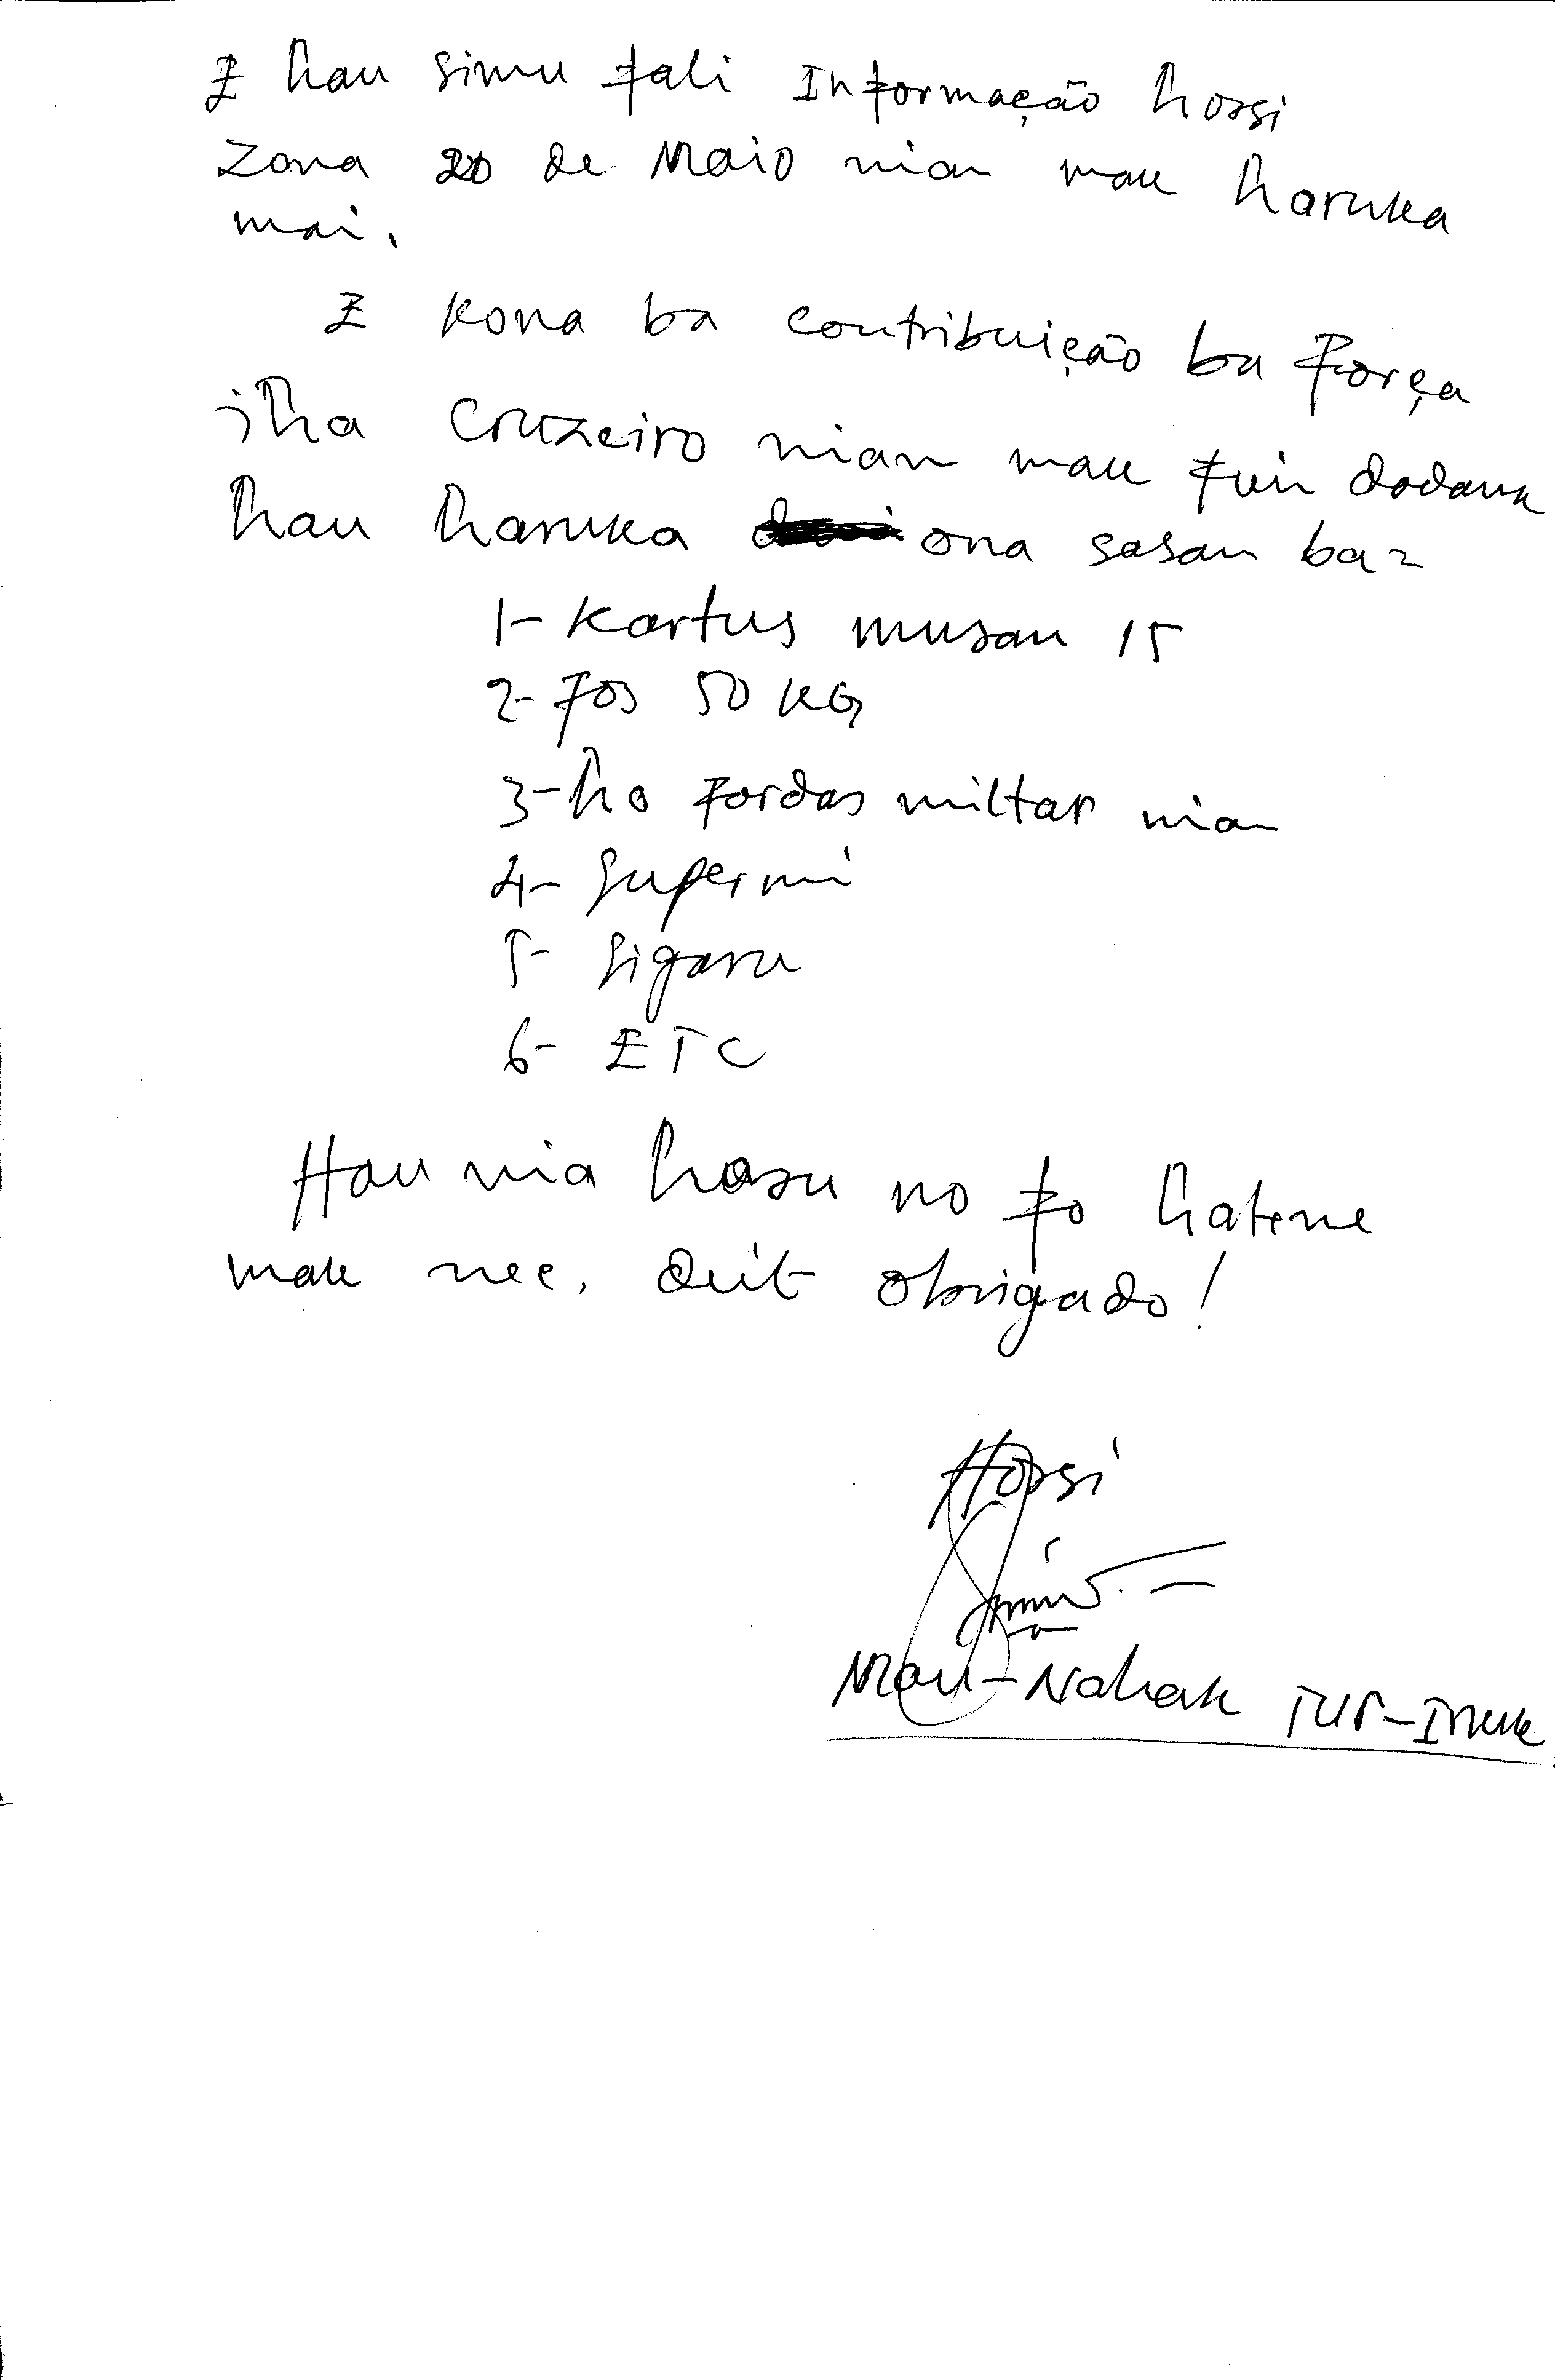 E hau simu fali Informação hossi
Zona 20 de Maio nian mak haruka
mai.
E kona ba contribuição ba Força
iha Cruzeiro nian mak fuin dadauk
hau haruka ona sasan ba=
1- Kartus musan 15
2- Fos 50 KG
3- ho fardas militar nian
4- Supermi
5- Sigaru
6- ETC
Hau nia hasu no fo hatene
mak nee. deit obrigado!
Hossi
Mau-Nahak TUR-INUK